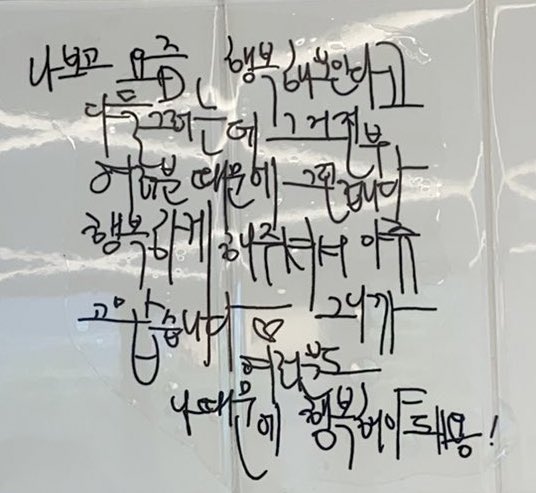 나보고 요즘 행복해보인다고
다들 그러는데 그거 전부
여러분 때문에 그런거야
행복하게 해주셔서 아주
고맙습니다 ♡ 그니까
여러분도
나 때문에 행복해야 돼용!